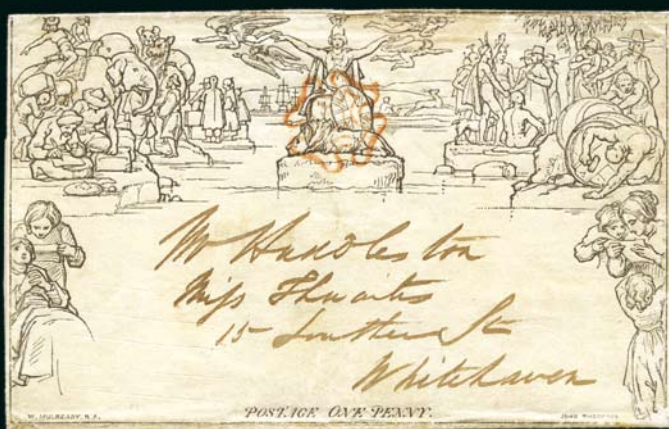 Mr Huddleston
Miss Thwaites
15 Lowther St
Whitehaven
W. MULREADY, R.A.
POSTAGE ONE PENNY.
JOHN THOMPSON